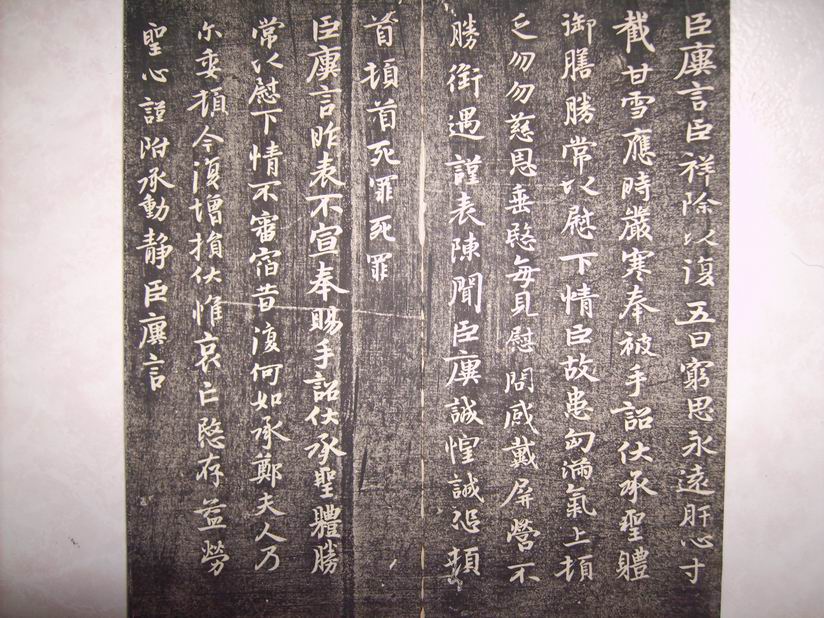 臣廙言臣祥除以復五日窮思永遠肝心寸
截甘雪應時嚴寒奉被手詔伏承聖體
御膳勝常以慰下情臣故患匈滿氣上頓
乏勿勿慈恩垂愍每見慰問感戴屏營不
勝銜遇謹表陳聞臣廙誠惶誠恐頓
首頓首死罪死罪
臣廙言昨表不宣奉賜手詔伏承聖體勝
常以慰下情不審宿昔復何如承鄭夫人乃
尓委頓今復增損伏惟哀亡愍存益勞
聖心謹附承動靜臣廙言